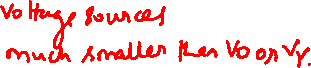 voltage sources
much smaller than Vo or Vr.